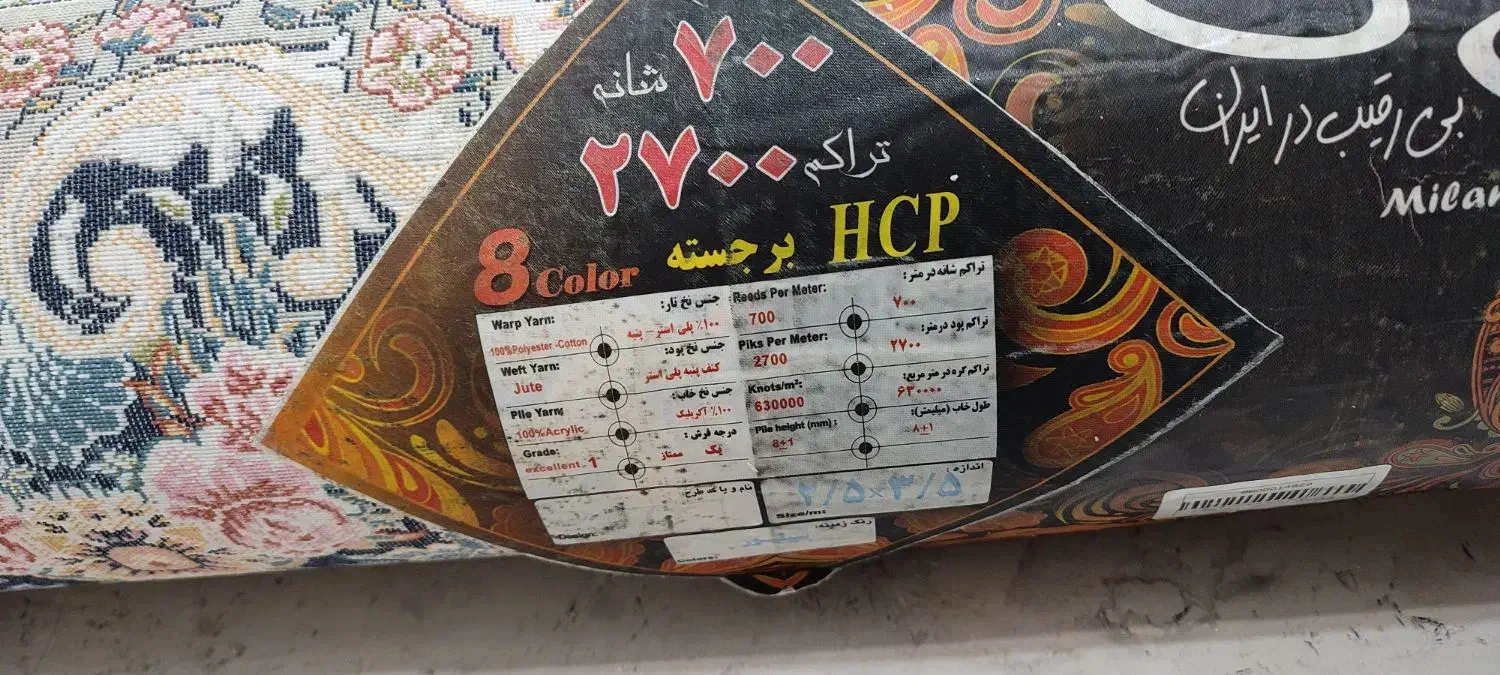 ۷۰۰ شانه
تراکم ۲۷۰۰
HCP برجسته
8 Color
بی رقیب در ایران
Milan
Warp Yarn:
جنس نخ تار:
100%Polyester -Cotton
۱۰۰٪ پلی استر - پنبه
Weft Yarn:
جنس نخ پود:
Jute
کنف پنبه پلی استر
Pile Yarn:
جنس نخ خاب:
100%Acrylic
۱۰۰٪ آکریلیک
Grade:
درجه فرش:
excellent 1
یک ممتاز
Design:
نام و یا کد طرح:
Reeds Per Meter:
تراکم شانه در متر:
700
۷۰۰
Piks Per Meter:
تراکم پود درمتر:
2700
۲۷۰۰
Knots/m²:
تراکم گره در متر مربع:
630000
۶۳۰۰۰۰
Pile height (mm):
طول خاب (میلیمتر):
8±1
۸±۱
اندازه:
۲/۵×۳/۵
Size/m:
رنگ زمینه:
Colors: